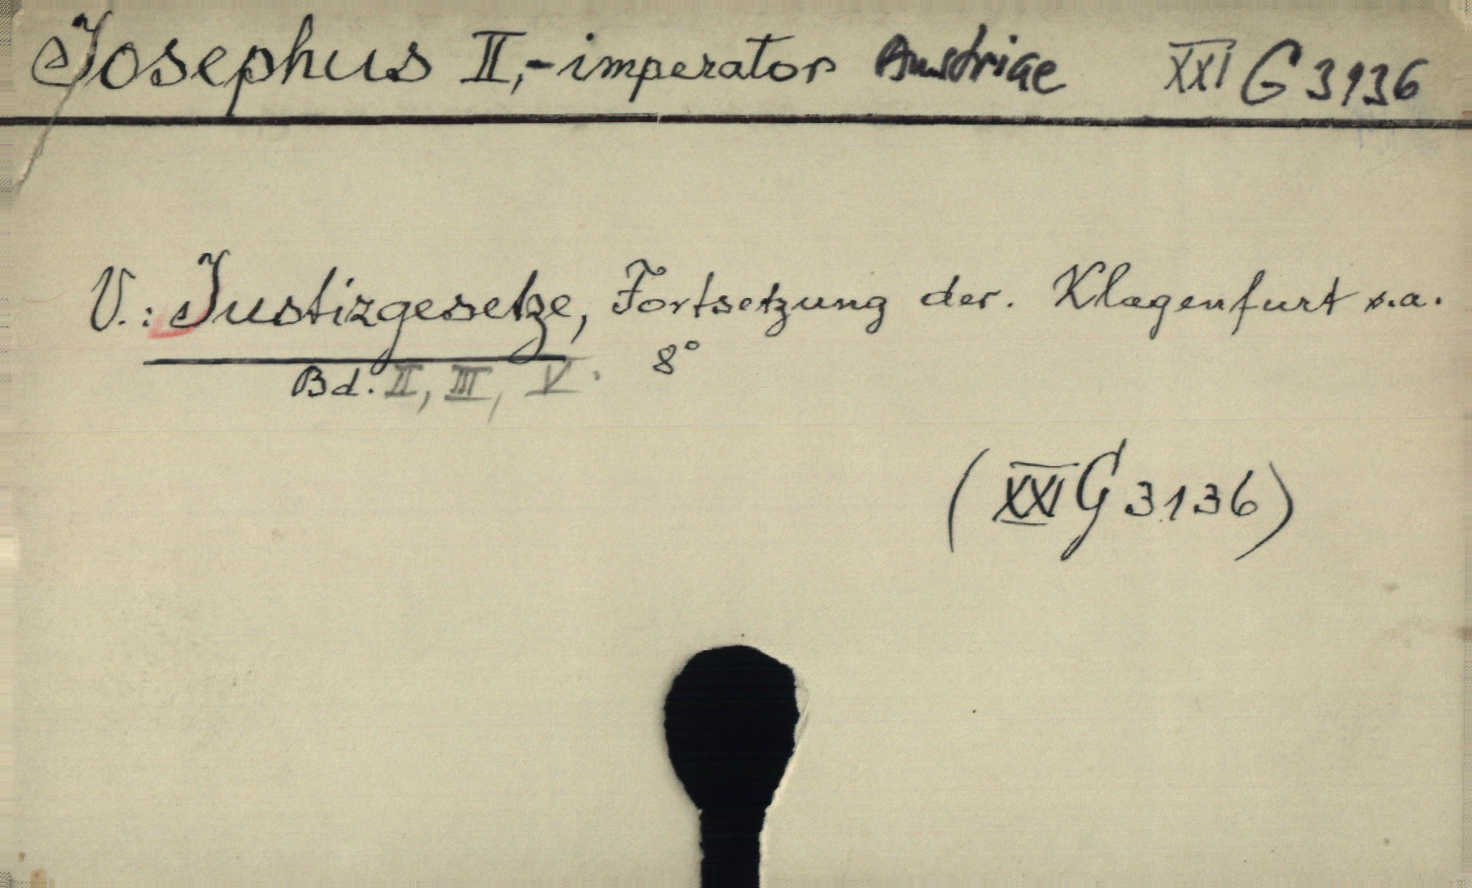 Josephus II,-imperator Austriae XXI G 3136
V.: Justizgesetze, Fortsetzung der. Klagenfurt s.a.
Bd. II, III, V. 8°
(XXI G 3136)